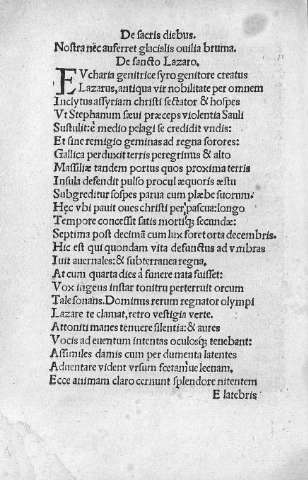 De sacris diebus.
Nostra nec auferret glacialis ouilia bruma.
De sancto Lazaro.
EVcharia genitrice syro genitore creatus
Lazarus, antiqua vir nobilitate per omnem
Inclytus assyriam christi sectator & hospes
Vt Stephanum sæui præceps violentia Sauli
Sustulit: è medio pelagi se credidit vndis:
Et sine remigio geminas ad regna sorores:
Gallica perduxit terris peregrinus & alto
Massiliæ tandem portus quos proxima terris
Insula defendit pulso procul æquoris æstu
Subgreditur sospes parua cum plæbe suorum.
Hęc vbi pauit oues christi per pascua: longo
Tempore concessit fatis mortisq; secundæ:
Septima post decimā cum lux foret orta decembris.
Hic est qui quondam vita defunctus ad vmbras
Iuit auernales: & subterranea regna,
At cum quarta dies à funere nata fuisset:
Vox ingens instar tonitru perterruit orcum
Tale sonans. Dominus rerum regnator olympi
Lazare te clamat, retro vestigia verte.
Attoniti manes tenuere silentia: & aures
Vocis ad euentum intentas oculosq; tenebant:
Assimiles damis cum per dumenta latentes
Aduentare vident vrsum fœtamue leenam.
Ecce animam claro cernunt splendore nitentem
E latebris